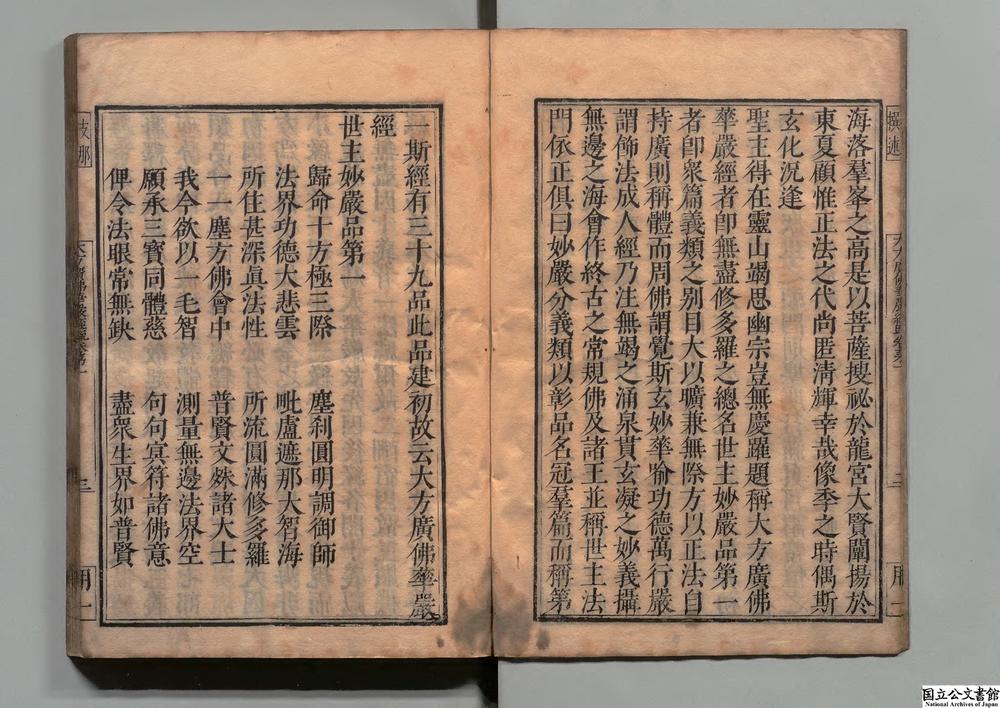 撰述
二
海落羣峯之高是以菩薩搜祕於龍宮大賢闡揚於
東夏顧惟正法之代尚匿清輝幸哉像季之時偶斯
玄化況逢
聖主得在靈山竭思幽宗豈無慶躍題稱大方廣佛
華嚴經者卽無盡修多羅之總名世主妙嚴品第一
者卽衆篇義類之别目大以曠兼無際方以正法自
持廣則稱體而周佛謂覺斯玄妙華喻功德萬行嚴
謂飾法成人經乃注無竭之涌泉貫玄凝之妙義攝
無邊之海會作終古之常規佛及諸王並稱世主法
門依正俱曰妙嚴分義類以彰品名冠羣篇而稱第
一斯經有三十九品此品建初故云大方廣佛華嚴
經
世主妙嚴品第一
歸命十方極三際　塵刹圓明調御師
法界功德大悲雲　毗盧遮那大智海
所住甚深眞法性　所流圓滿修多羅
一一塵方佛會中　普賢文殊諸大士
我今欲以一毛智　測量無邊法界空
願承三寶同體慈　句句冥符諸佛意
俾令法眼常無缺　盡衆生界如普賢
支那
三
用一
国立公文書館
National Archives of Japan